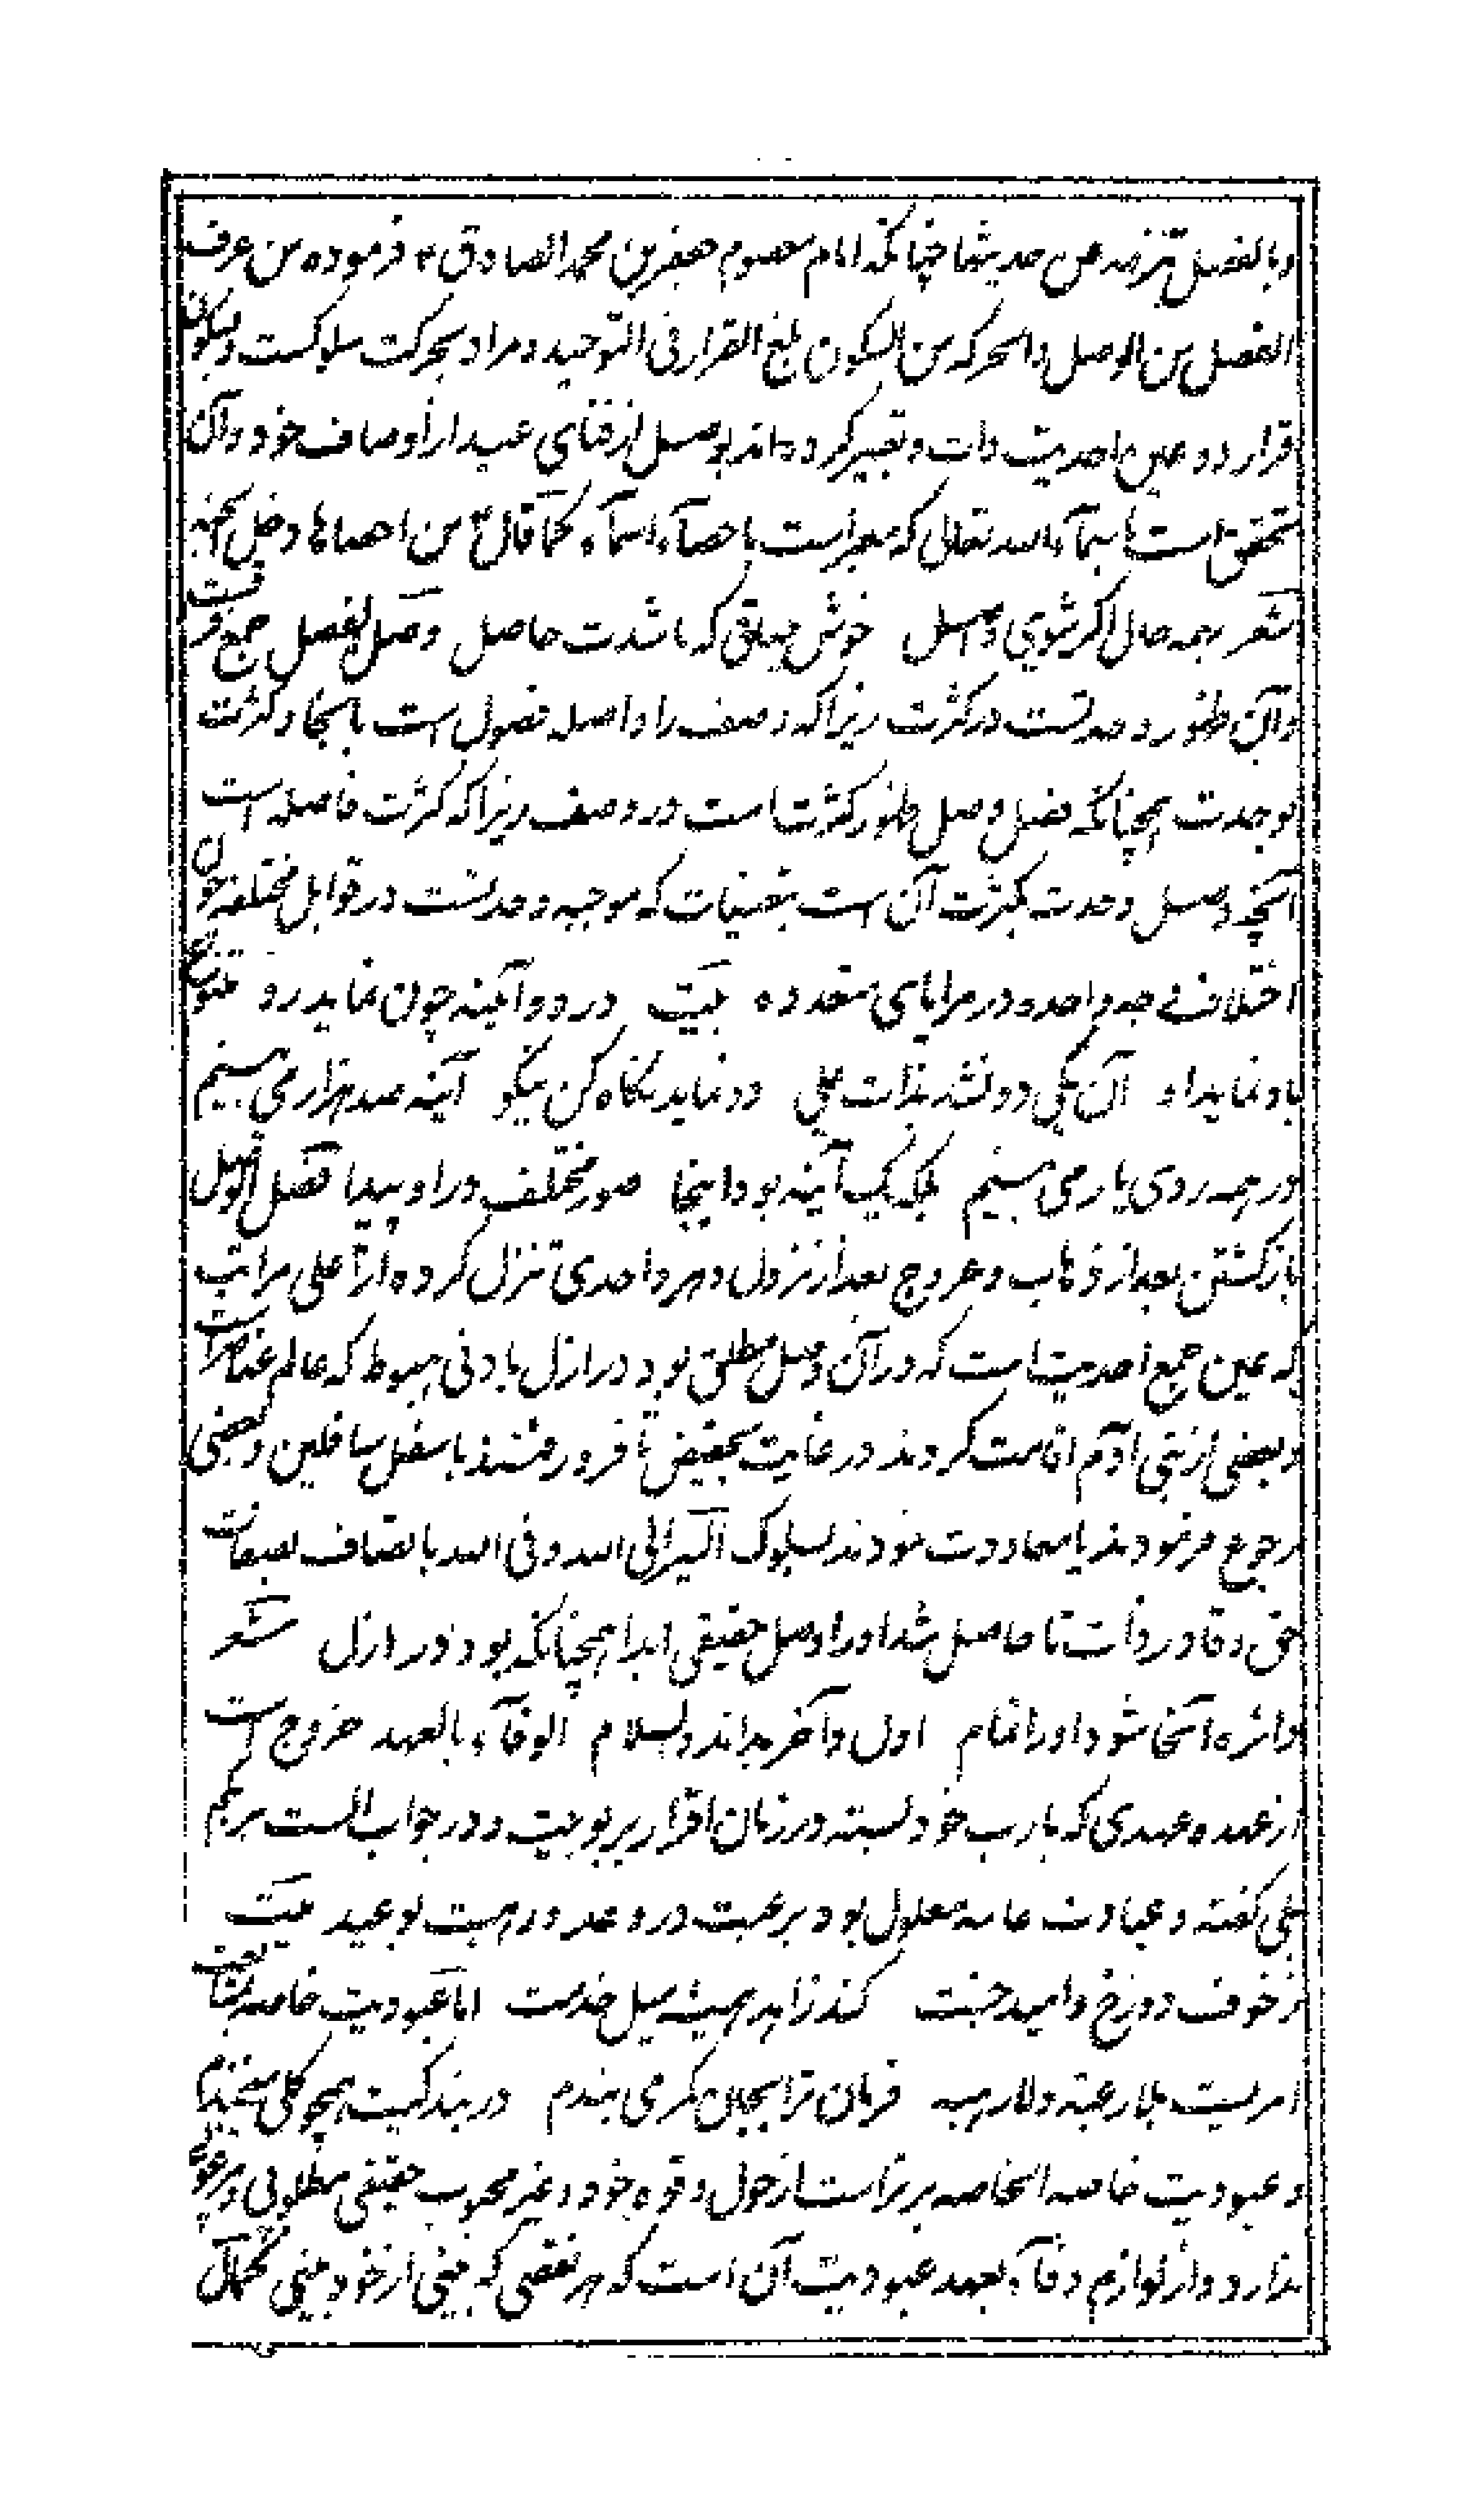 وبالفصل تنزه عن حدیثها چنانکه امام معصوم جعفر بن محمد الصادق ع فرموده من عرف
الفصل من الوصل والحرکه من السکون بلغ القرار فی التوحید و مراد بحرکت سلوکست و بسکون
قرار در عین احدیت ذات و تعبیر کرده‌اند بوصل از فنای عبد از اوصاف خود و آن
تحقق است باسمآء الله تعالی که معبر است باحصآء اسمآء کما قال من احصاها دخل الجنه
شعر بهمه حال اگر شوی واصل خوش بود که باشدت حاصل وصل الفصل جمع فرقت
و آن ظهور وحدتست در کثرت زیرا که وصف را واصله فصول است باتحاد کثرت
بوحدت همچنانکه فصل وصل ظهور کثرت است در وصف زیرا که کثرت فاصله است
آنچه وصل وحدت بکثرت آن است بتعینات که موجبه وحدتست در قوابل مختلفه چون
اختلاف وجه واحده در مرایای متعدده بیت در دو آئینه چون نماید رو متنوع
باو نماید او آن یکی دو نشد بذات علی دو نماید نگاه کن نیکو آینه صد هزار می بینم
در همه روی یار می بینم بلکه یک آینه بود اینجا صور مختلف در او پیدا فصل الوصل
بازگشتن بعد از ذهاب و عروج بعد از نزول و هر واحدی تنزل کرده از اعلی مراتب
که عین جمع احدیت است که در آن وصل مطلق بود در ازل بادنی هبوط که عالم عناصر است
و بعضی از بنی آدم اقامت کردند در غایت حضیض تا فرو رفتند باسفل سافلین و بعضی
رجوع فرمودند یا معاودت نمودند بسلوک السیر الی الله و فی الله باتصاف بصفات
حق و فنا در ذات تا حاصل شد او را وصل حقیقی ابدا همچنانکه بود در ازل شعر
دائره آنجا شود او را تمام اول و آخر بداند والسلام الوفآء بالعهد خروج است
از عهده عهدی که با رب خود بسته در زمان اقرار بربوبیت و در جواب الست بربکم
بلی گفته و عبادت عامه معلول بود برغبت در وعد و رهبت بوعید بیت
ز خوف دوزخ و امید جنت کند زاهد همیشه میل خدمت اما عبودیت خاصه
امریست بلا رغبة ولا رهبه فرمان ترا بجان کمر می بندم در بندگیت همچو گلی میخندم
و عبودیت خاصه الخاصه برتر است از حول و قوه خود و غیر محبوب حقیقی مطلوبی و مرغوبی
ندارد و از لوازم وفآء بعهد عبودیت آن است که هر نقصی که بینی از خود بینی و کمال